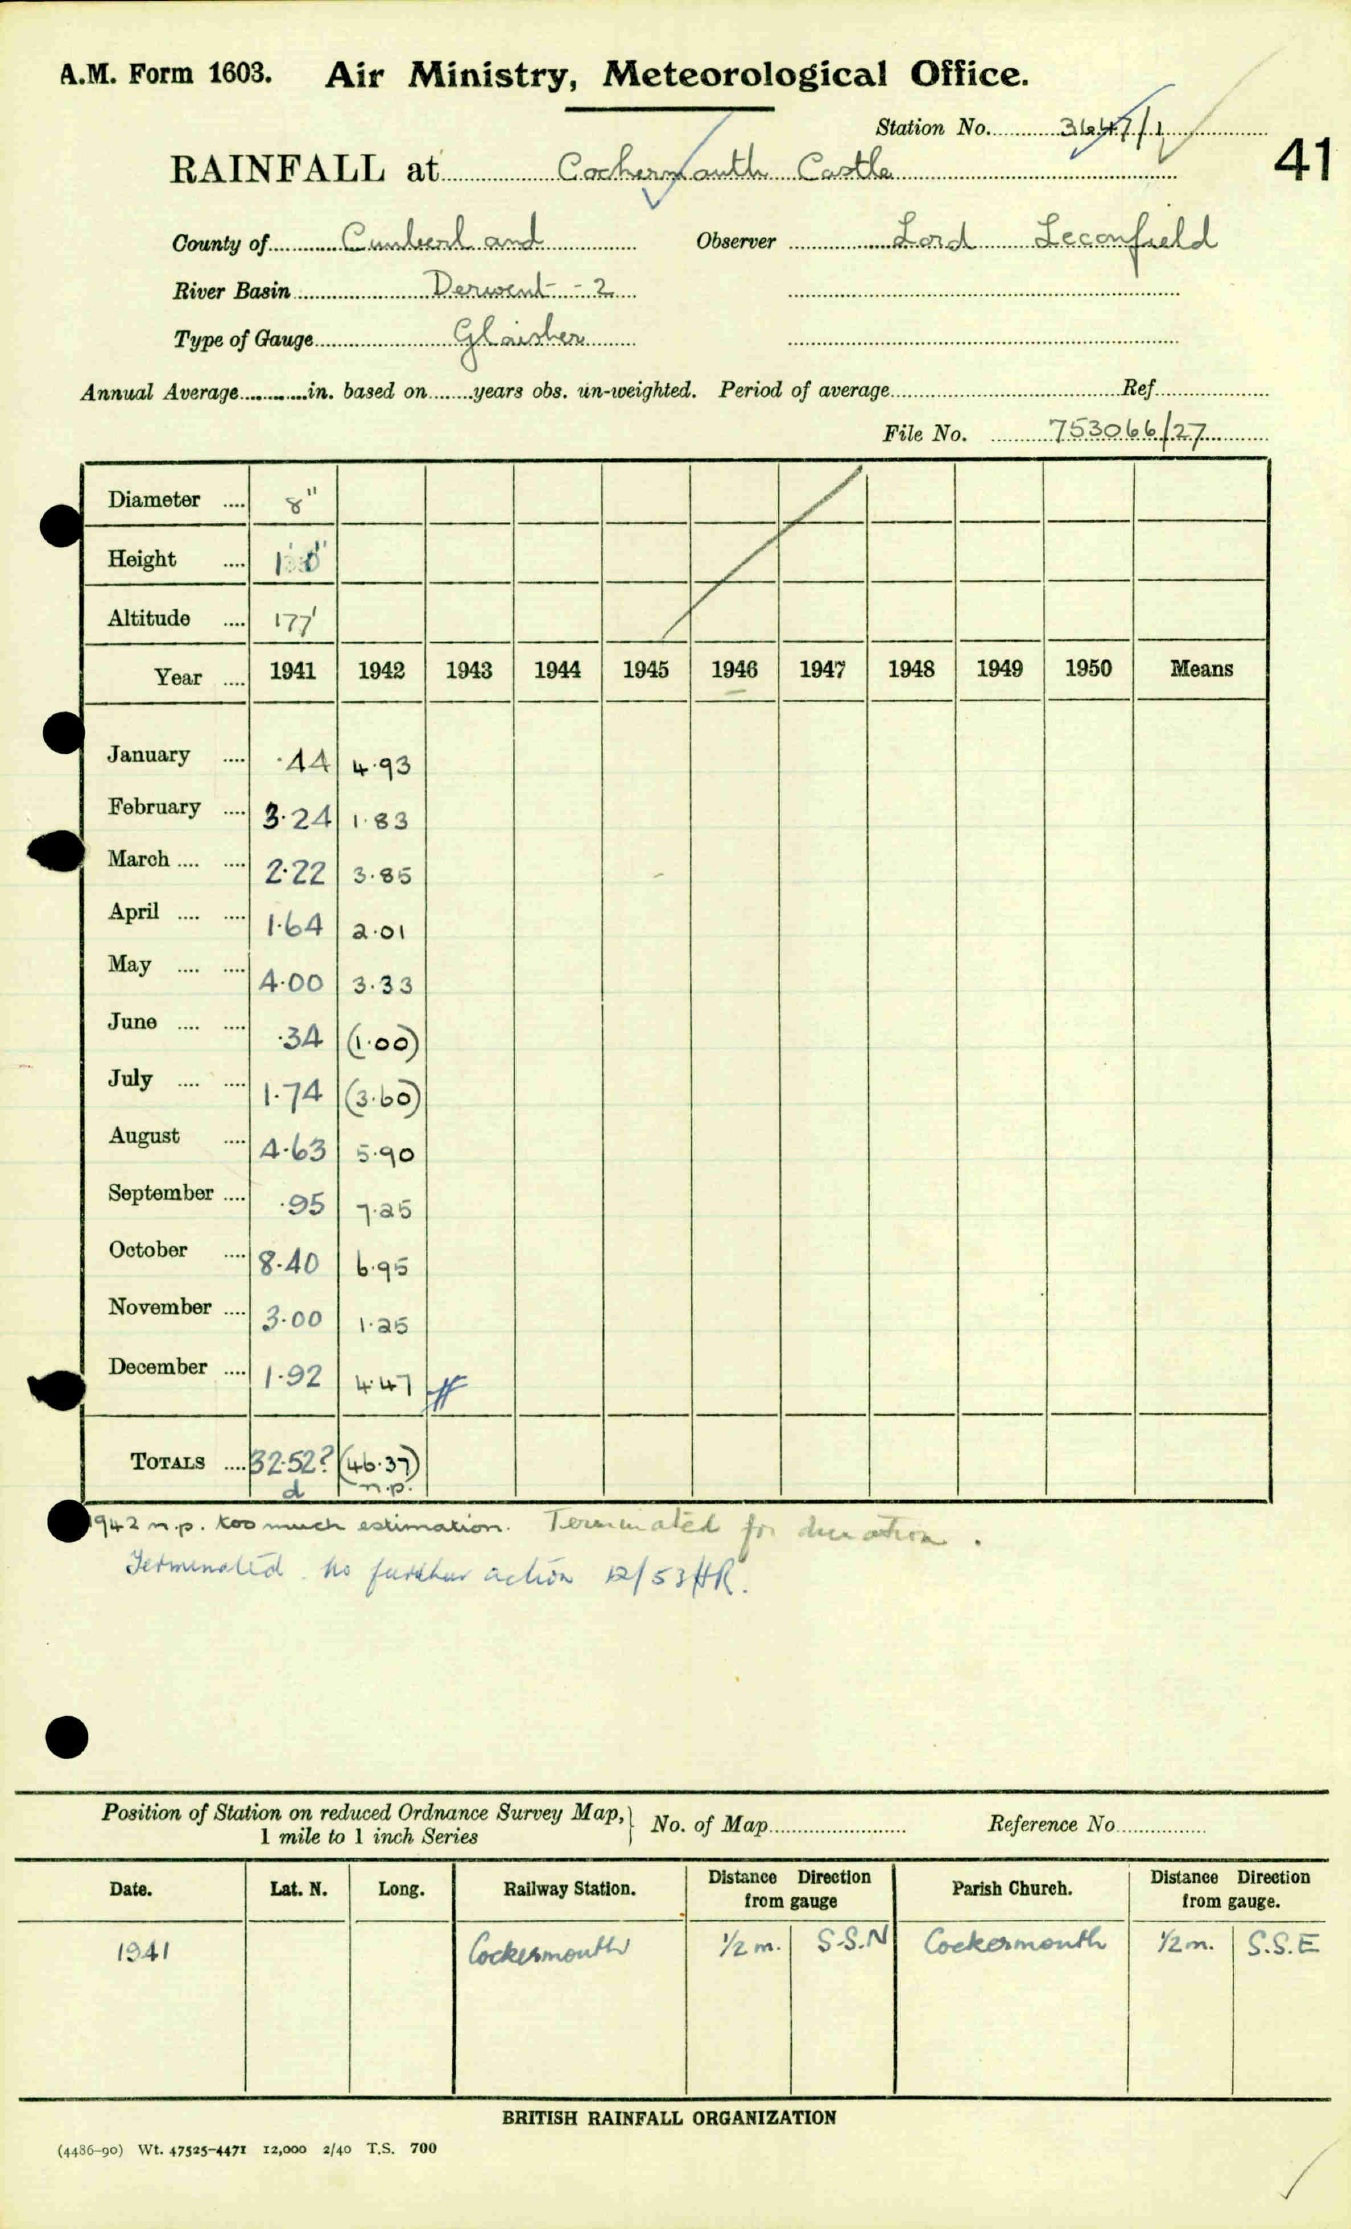 A.M. Form 1603. Air Ministry, Meteorological Office.
Station No. 3647/1
41
RAINFALL at Cockermouth Castle
County of Cumberland Observer Lord Leconfield
River Basin Derwent - 2
Type of Gauge Glaisher
Annual Average in. based on years obs. un-weighted. Period of average Ref
File No. 753066/27
Diameter .... 8"
Height ....
Altitude .... 177'
Year .... 1941 1942 1943 1944 1945 1946 1947 1948 1949 1950 Means
January .... .44 4.93
February .... 3.24 1.83
March .... .... 2.22 3.85
April .... .... 1.64 2.01
May .... .... 4.00 3.33
June .... .... .34 (1.00)
July .... .... 1.74 (3.60)
August .... 4.63 5.90
September .... .95 7.25
October .... 8.40 6.95
November .... 3.00 1.25
December .... 1.92 4.47
TOTALS .... 32.52? (46.37)
d n.p.
1942 n.p. too much estimation. Terminated for duration.
Terminated. No further action 12/53 HR.
Position of Station on reduced Ordnance Survey Map,} No. of Map Reference No
1 mile to 1 inch Series
Date. Lat. N. Long. Railway Station. Distance Direction from gauge Parish Church. Distance Direction from gauge.
1941 Cockermouth 1/2 m. S.S.W Cockermouth 1/2 m. S.S.E
BRITISH RAINFALL ORGANIZATION
(4486-90) Wt. 47525-4471 12,000 2/40 T.S. 700